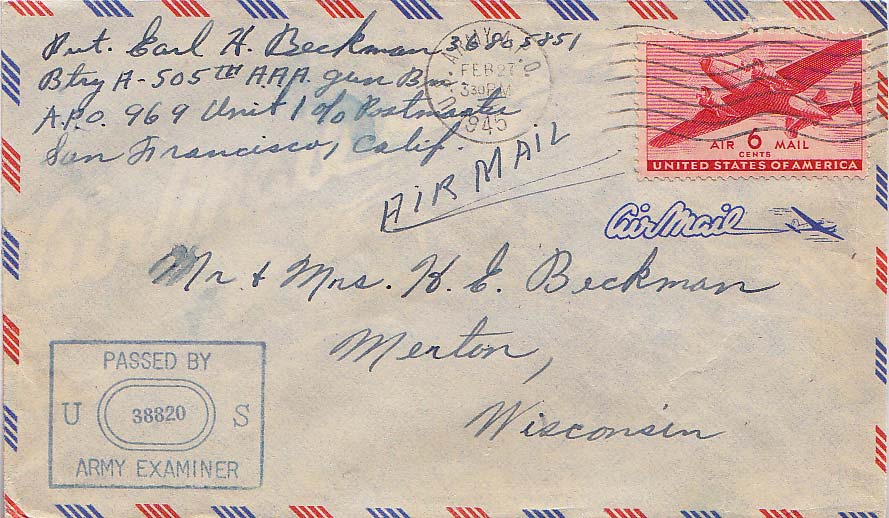 Pvt. Earl H. Beckman 36805851
Btry A-505th A.A.A. gun Bn
A.P.O. 969 Unit 1 c/o Postmaster
San Francisco, Calif.
U.S. ARMY
FEB 27
3 30 PM
1945
AIR MAIL
AIR 6 MAIL
CENTS
UNITED STATES OF AMERICA
Air Mail
Mr. & Mrs. H. E. Beckman
Merton,
Wisconsin
PASSED BY
U 38820 S
ARMY EXAMINER